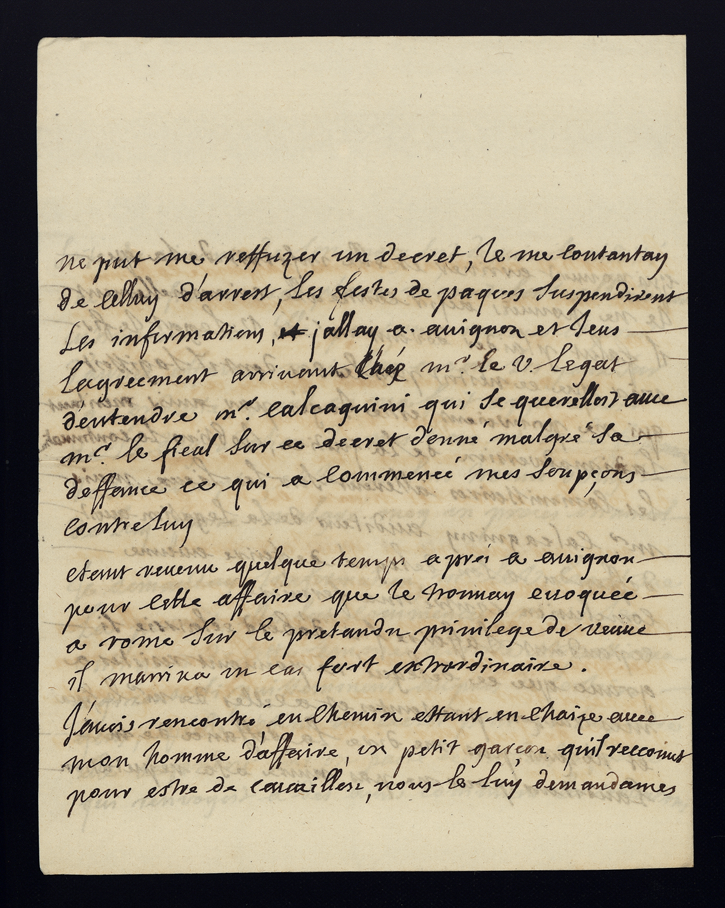 ne put me reffuzer un decret, Je me Contantay
de Celluy d'arrest, Les festes de paques Suspendirent
Les informations, jallay a. avignon et Jeus
l'agreement arrivant m.r le V. legat
d'entendre m.r Calcagnini qui Se querelloit avec
m.r le fical Sur ce decret donné malgré Sa
deffance ce qui a Commencé mes Soupçons
Contre luy
etant revenu quelque temps aprés a avignon
pour Cette affaire que Je trouvay evoquée
a rome Sur le pretandu privilege de veuve
il marriva un cas fort extrordinaire.
J'avois rencontré en Chemin ettant en Chaize avec
mon homme d'affaire, un petit garcon qu'il reconnut
pour estre de Cavaillon, nous le luy demandames